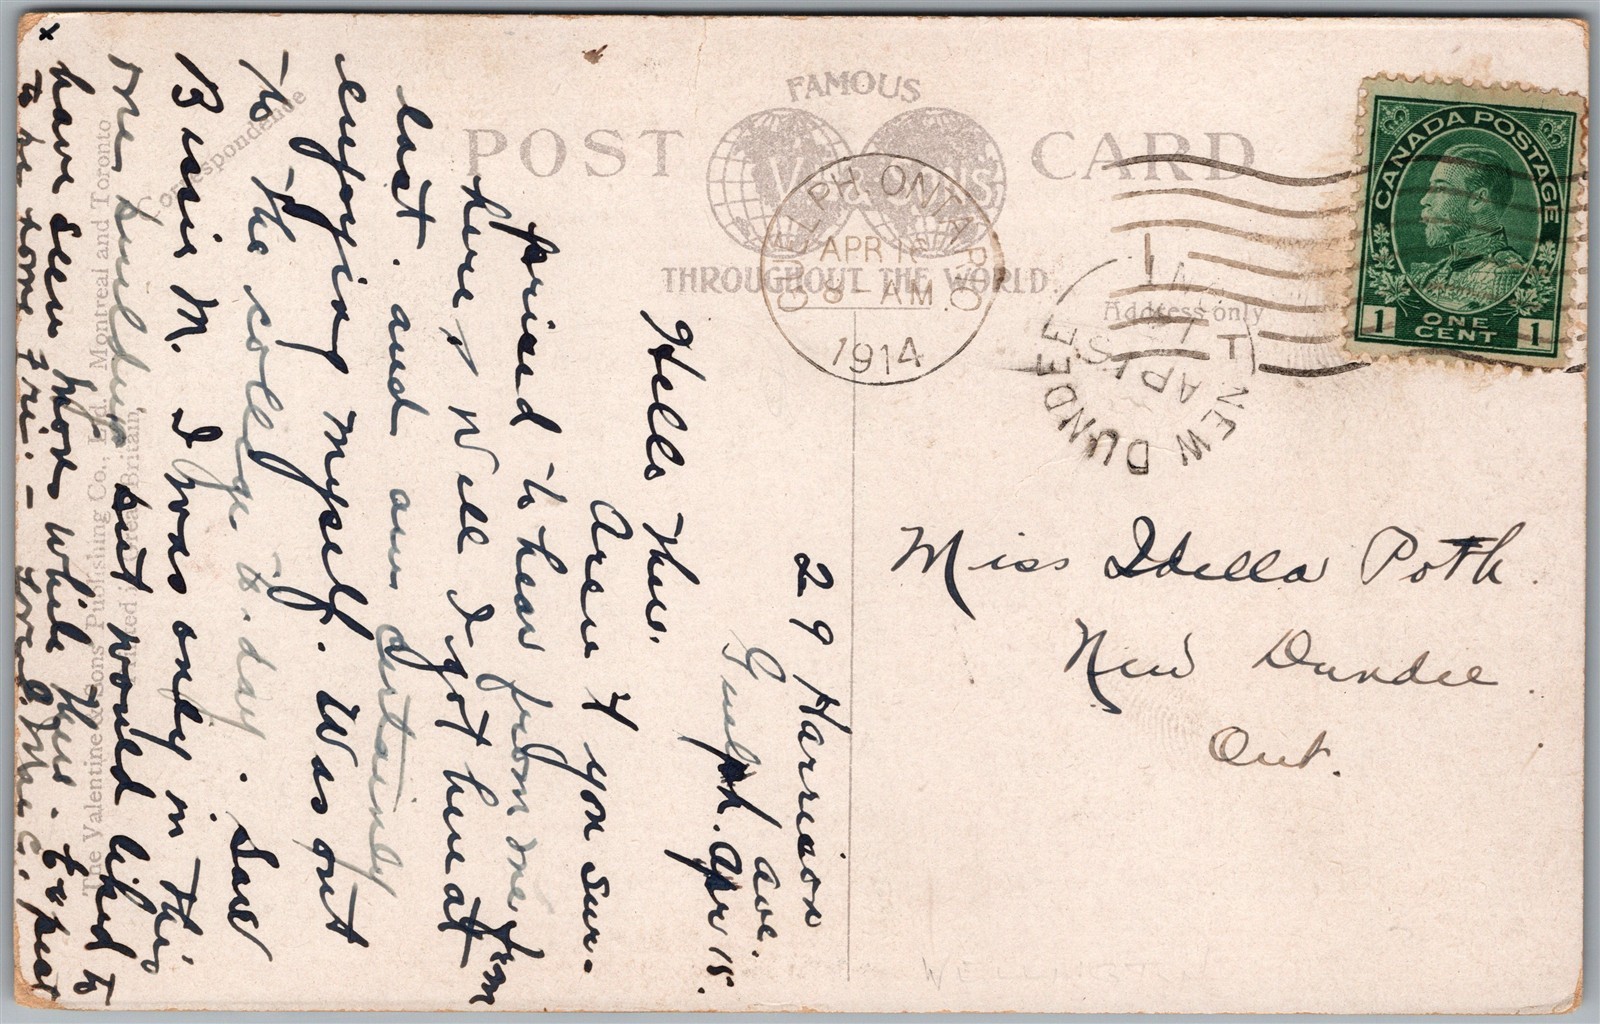 FAMOUS
POST CARD
V. & SONS
THROUGHOUT THE WORLD.
Address only
Correspondence
The Valentine & Sons Publishing Co., Ltd. Montreal and Toronto
Printed in Great Britain.
GUELPH. ONTARIO
APR 16
8 - AM
1914
NEW DUNDEE
ONT
CANADA POSTAGE
1 ONE CENT 1
29 Harrison Ave.
Guelph. Apr 15.
Hello There.
Aren't you sur-
prised to hear from me from
here. Well I got here at
last. and am certainly
enjoying myself. Was out
to the college to-day. Saw
Bessie M. I was only in this
one building but would liked to
have seen more while there. Expect
to be home Fri. -
Miss Idella Poth.
New Dundee.
Ont.